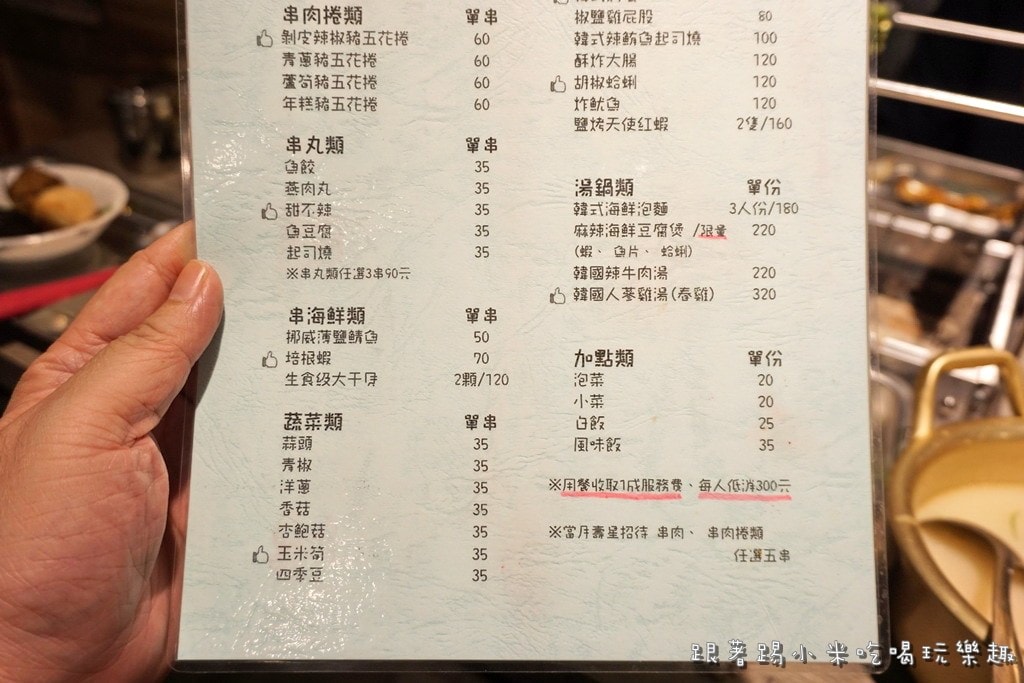 串肉捲類 單串
剝皮辣椒豬五花捲 60
青蔥豬五花捲 60
蘆筍豬五花捲 60
年糕豬五花捲 60
串丸類 單串
魚餃 35
燕肉丸 35
甜不辣 35
魚豆腐 35
起司燒 35
※串丸類任選3串90元
串海鮮類 單串
挪威薄鹽鯖魚 50
培根蝦 70
生食级大干貝 2顆/120
蔬菜類 單串
蒜頭 35
青椒 35
洋蔥 35
香菇 35
杏鮑菇 35
玉米筍 35
四季豆 35
椒鹽雞屁股 80
韓式辣鮪魚起司燒 100
酥炸大腸 120
胡椒蛤蜊 120
炸魷魚 120
鹽烤天使红蝦 2隻/160
湯鍋類 單份
韓式海鮮泡麵 3人份/180
麻辣海鮮豆腐煲 /限量 220
(蝦、魚片、蛤蜊)
韓國辣牛肉湯 220
韓國人蔘雞湯(春雞) 320
加點類 單份
泡菜 20
小菜 20
白飯 25
風味飯 35
※用餐收取1成服務費、每人低消300元
※當月壽星招待 串肉、串肉捲類
任選五串
跟著踢小米吃喝玩樂趣